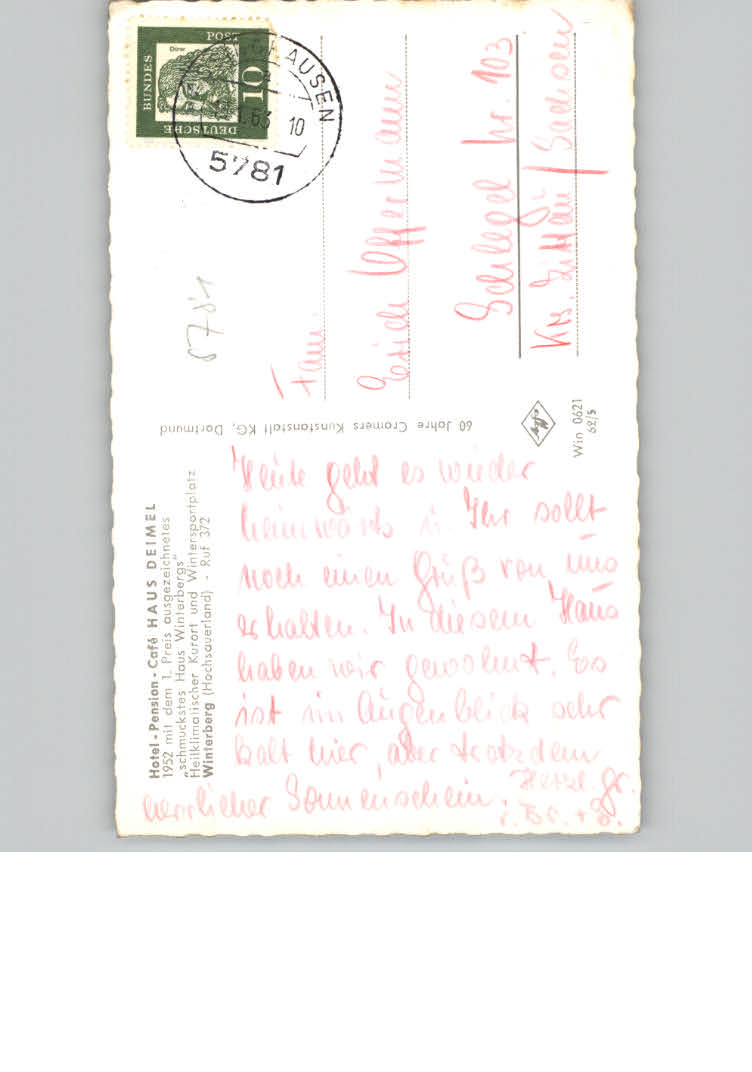 Hotel - Pension - Café HAUS DEIMEL
1952 mit dem 1. Preis ausgezeichnetes
„schmuckstes Haus Winterbergs"
Heilklimatischer Kurort und Wintersportplatz
Winterberg (Hochsauerland) - Ruf 372
Heute geht es wieder
heimwärts u. Ihr sollt
noch einen Gruß von uns
erhalten. In diesem Haus
haben wir gewohnt. Es
ist im Augenblick sehr
kalt hier, aber trotzdem
herrlicher Sonnenschein.
Herzl. Gr.
60 Jahre Cramers Kunstanstalt KG, Dortmund
DEUTSCHE
BUNDES
POST
Dürer
10
HAUSEN
63 10
5781
5781
Fam.
Erich Offermann
Schlegel Nr. 103
Krs. Zittau / Sachsen
Win 0621
62/5